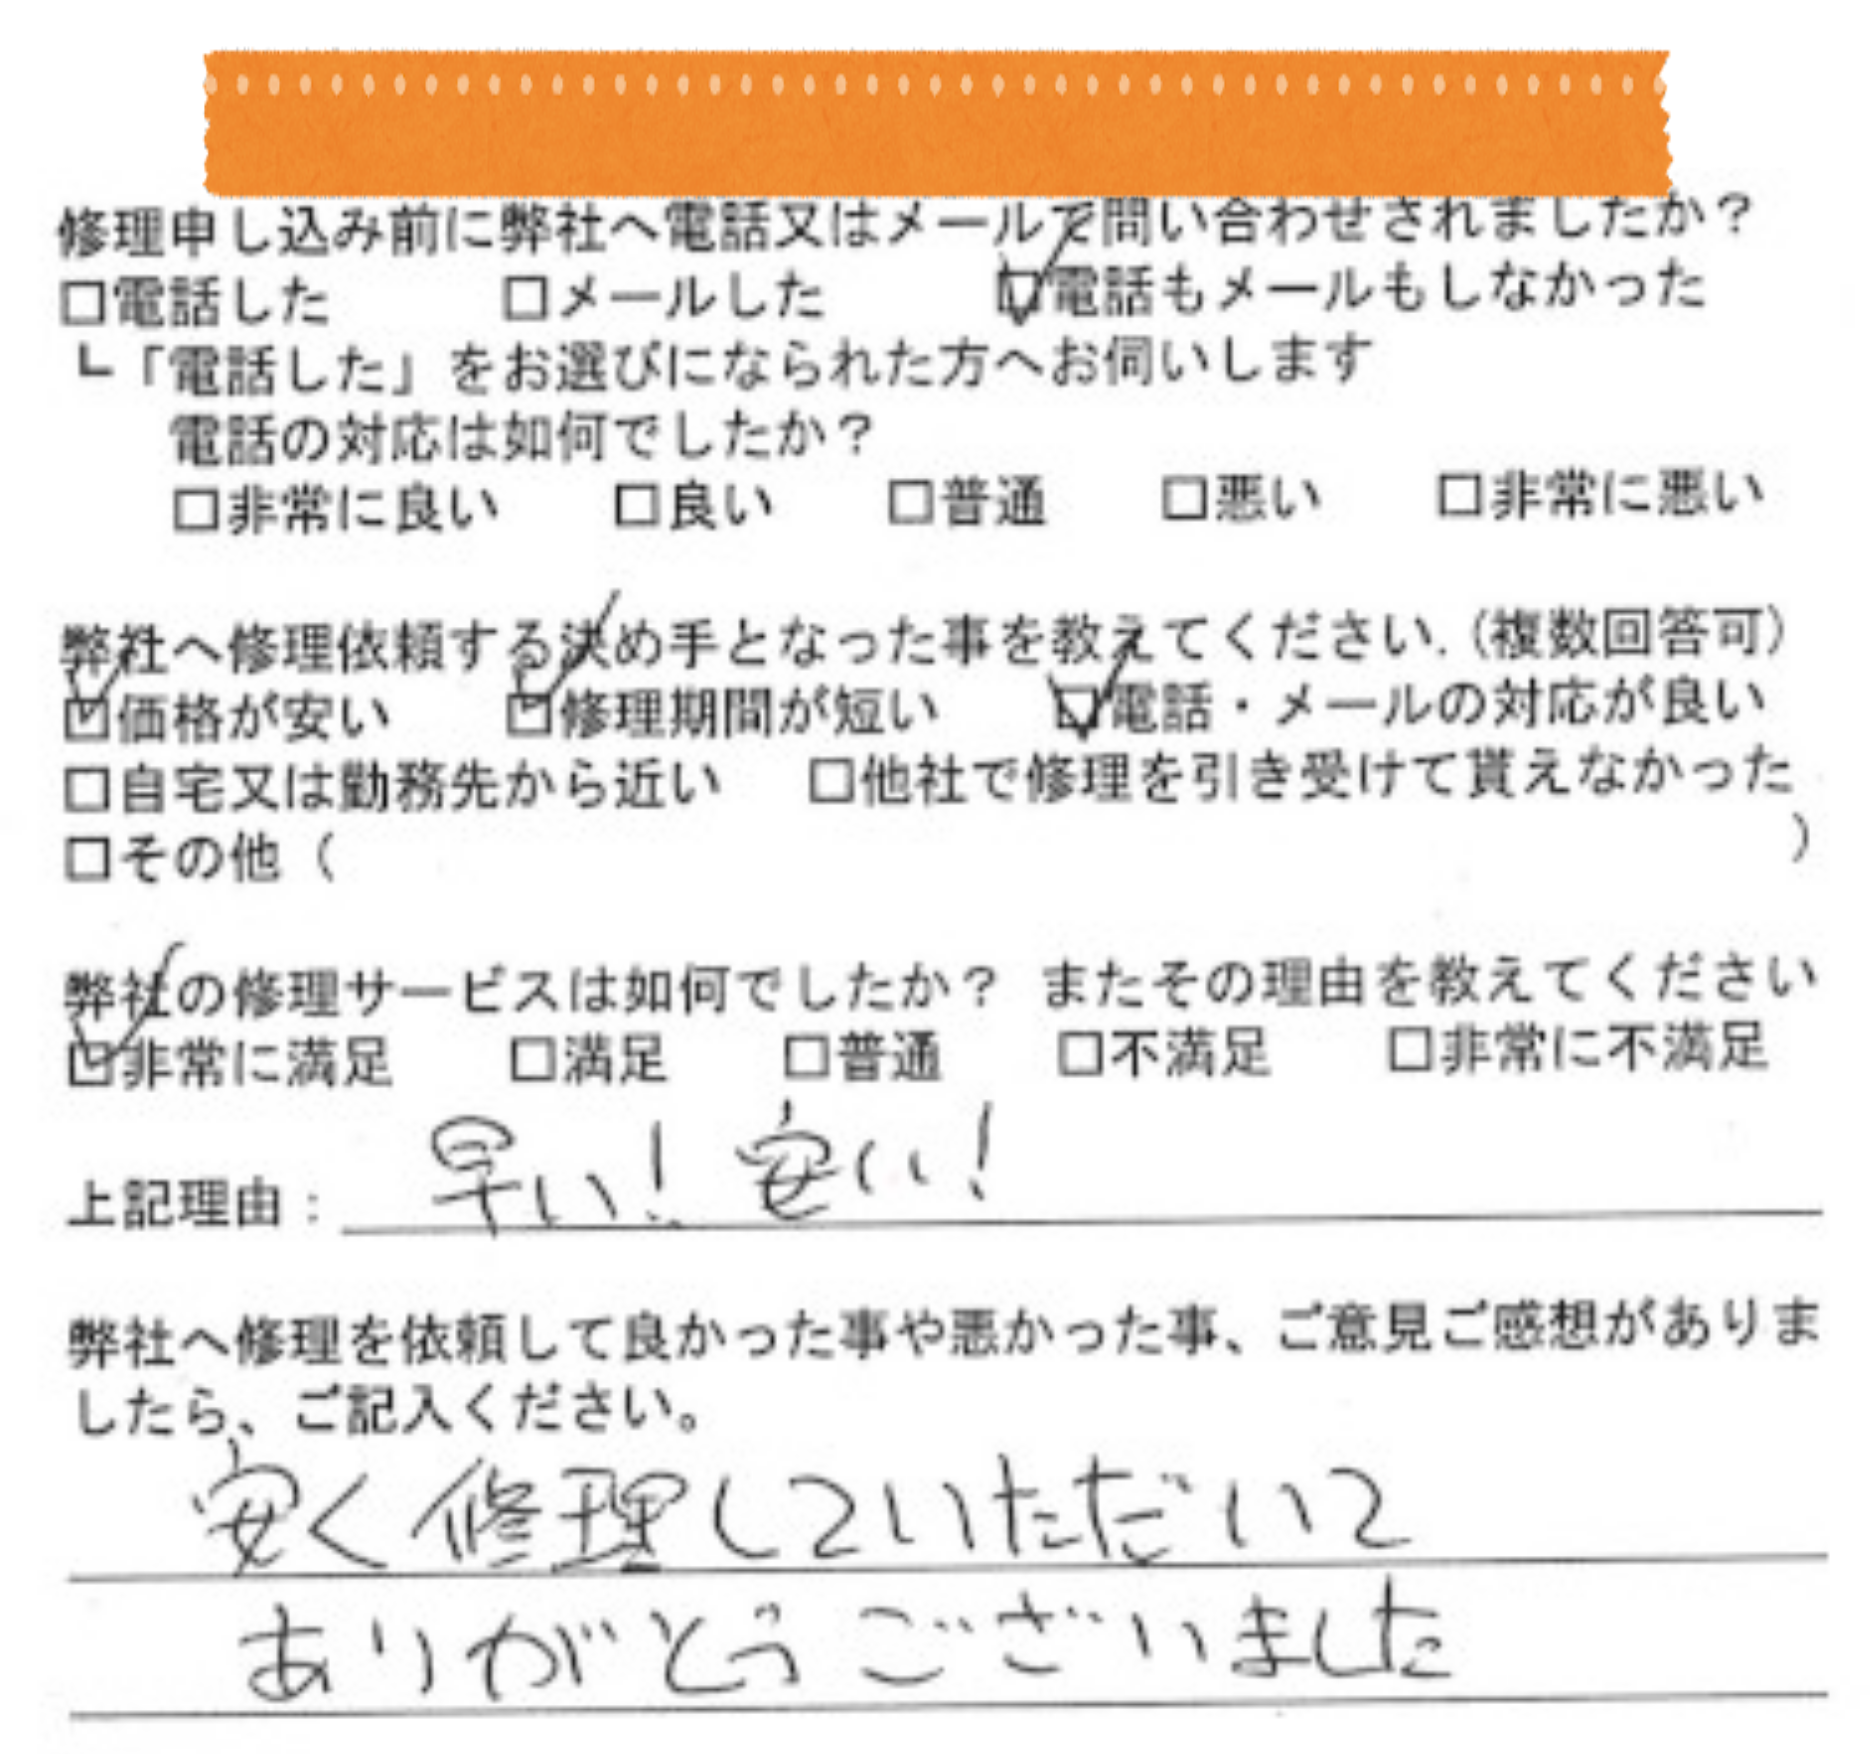 修理申し込み前に弊社へ電話又はメールで問い合わせされましたか？
□電話した □メールした ☑電話もメールもしなかった
┗「電話した」をお選びになられた方へお伺いします
電話の対応は如何でしたか？
□非常に良い □良い □普通 □悪い □非常に悪い
弊社へ修理依頼する決め手となった事を教えてください.（複数回答可）
☑価格が安い ☑修理期間が短い ☑電話・メールの対応が良い
□自宅又は勤務先から近い □他社で修理を引き受けて貰えなかった
□その他（ ）
弊社の修理サービスは如何でしたか？ またその理由を教えてください
☑非常に満足 □満足 □普通 □不満足 □非常に不満足
上記理由： 早い！安い！
弊社へ修理を依頼して良かった事や悪かった事、ご意見ご感想がありま
したら、ご記入ください。
安く修理していただいて
ありがとうございました